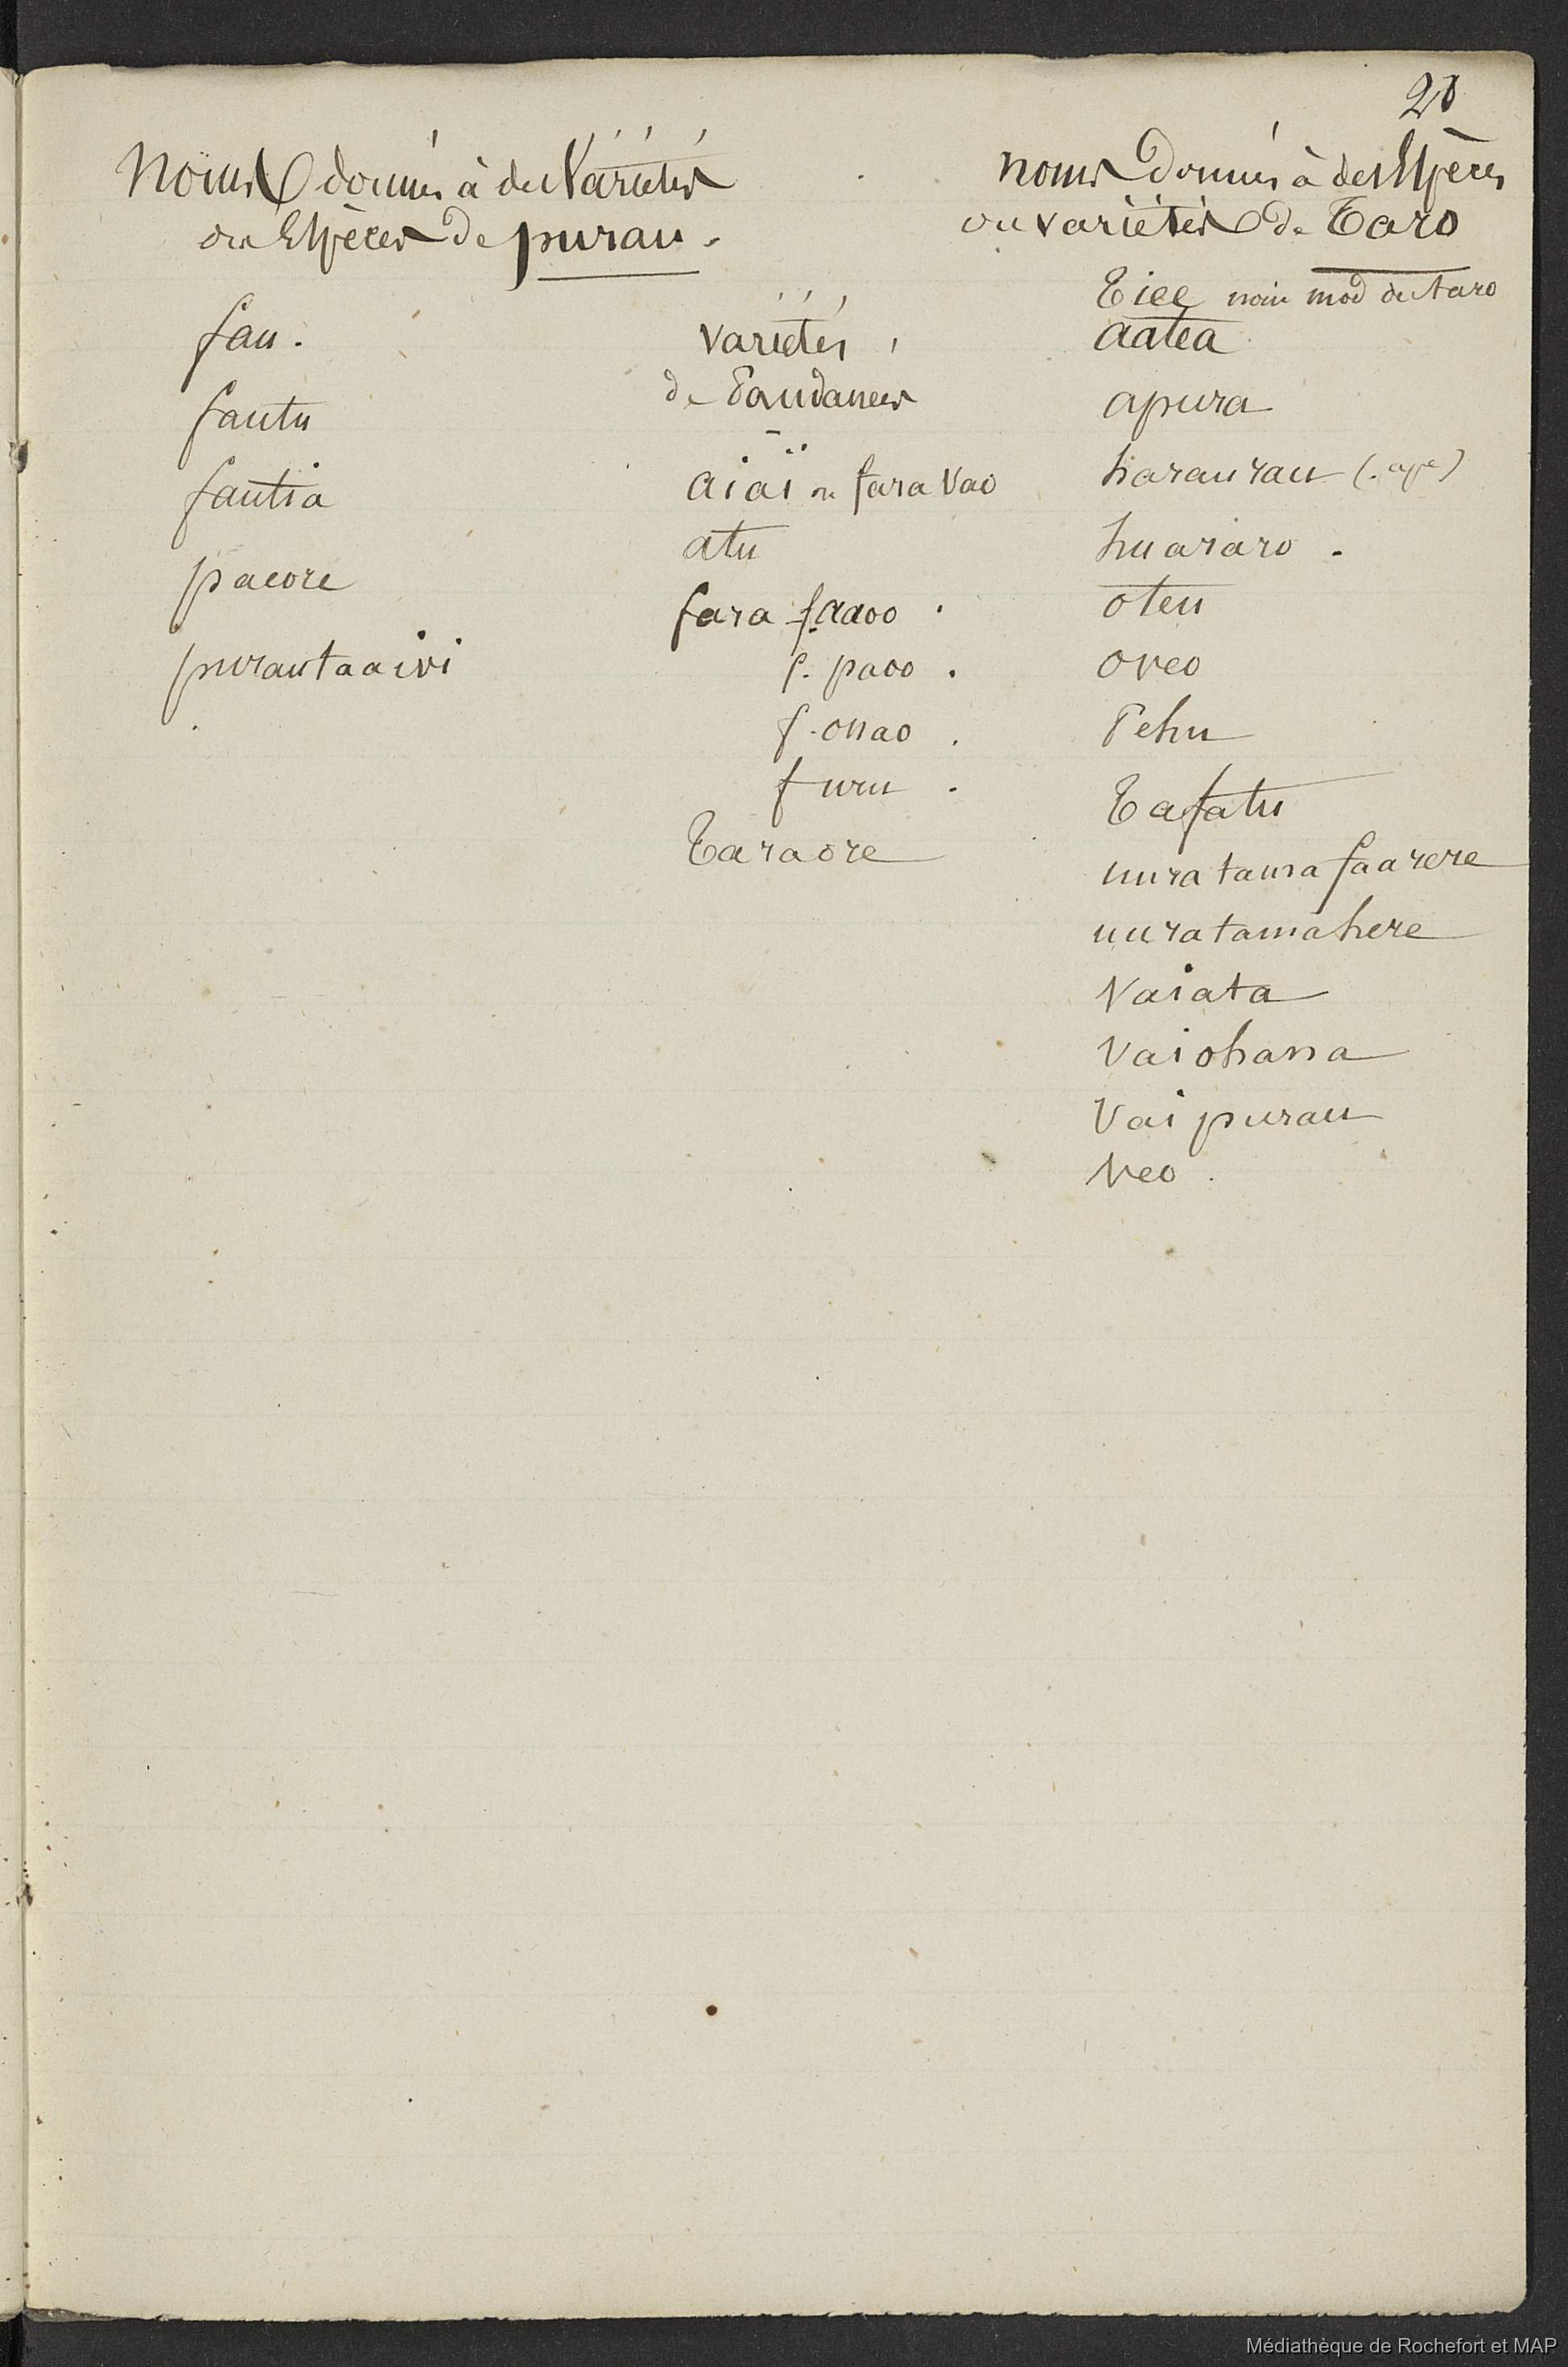 20
Noms donnés à des Variétés
ou Espèces de purau.
fau.
fautu
fautia
pacore
purautaaivi
variétés
de Pandanees
aiaï ou fara Vao
atu
fara faaoo
f. paoo.
f. onao.
f uru.
Taraore
noms donnés à des Espèces
ou variétés de Taro
Tiee nom mod du taro
aatea
apura
haraurau (. ape)
huararo.
oteu
oveo
Pehu
Tafatu
uuratama faarere
uuratamahere
Vaiata
Vaiohana
Vai purau
Veo.
Médiathèque de Rochefort et MAP